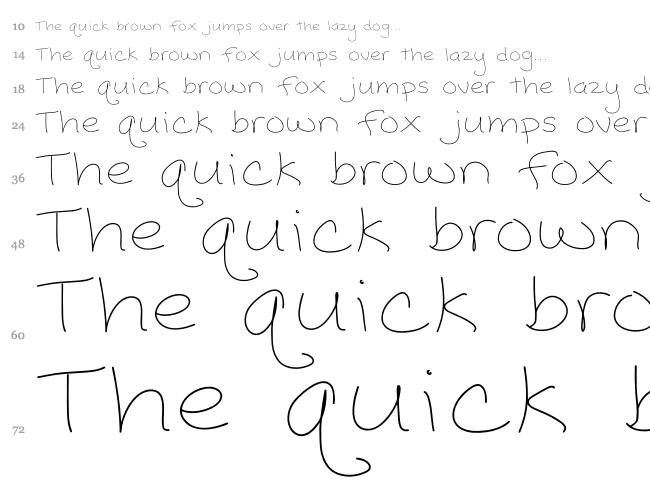 10 The quick brown fox jumps over the lazy dog...
14 The quick brown fox jumps over the lazy dog...
18 The quick brown fox jumps over the lazy d
24 The quick brown fox jumps over
36 The quick brown fox
48 The quick brown
60 The quick bro
72 The quick b